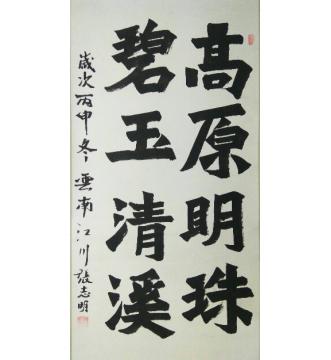 高原明珠
碧玉清溪
歲次丙申冬雲南江川張志明